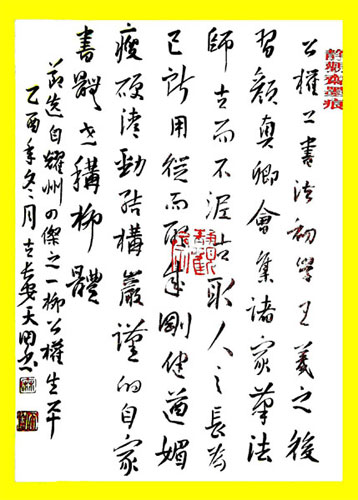 靜觀齋墨痕
公權之書法初學王羲之後
習顏真卿會集諸家筆法
師古而不泥古取人之長為
己所用從而形成剛健遒媚
瘦硬清勁結構嚴謹的自家
書體世稱柳體
節选自耀州四傑之一柳公權生平
乙酉年冬月古長安天